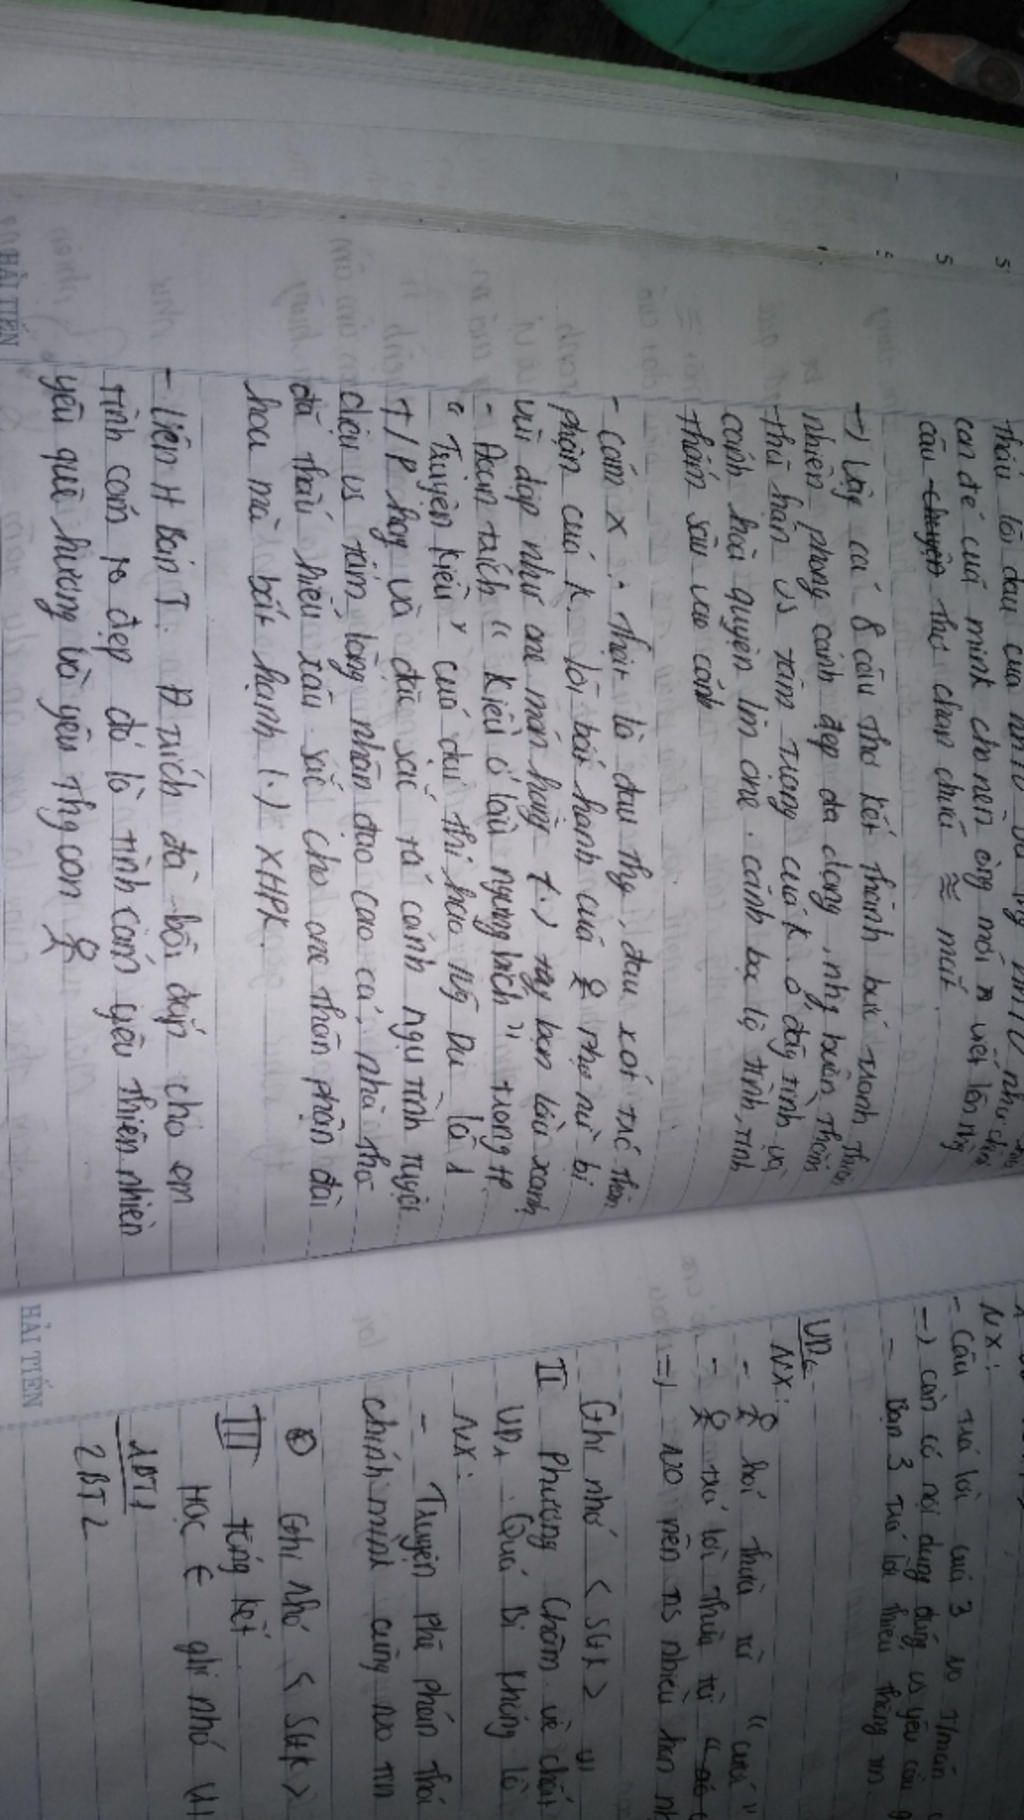 con đẻ của mình cho nên ông mới n viết lên nhg
câu thơ chan chứa mắt
→ Vậy cả 8 câu thơ kết thành bức tranh thiên
nhiên phong cảnh đẹp đa dạng, nhg buồn thảm
thù hận vs tâm trạng của k ở đây tình và
cảnh hòa quyện lm one. cảnh bộc lộ tình, tình
thấm sâu vào cảnh
- cảm x : thật là đau thg, đau xót trc thân
phận của k. lời bất hạnh của như nữ bị
vùi dập như one món hàng (.) tay bọn lầu xanh
- đoạn trích " kiều ở lầu ngưng bích " trong tp.
" Truyện kiều " của đại thi hào ng Du là 1
t/p hay và đặc sắc tả cảnh ngụ tình tuyệt
diệu vs tấm lòng nhân đạo cao cả, nhà thơ
đã thấu hiểu sâu sắc cho one thân phận đài
hoa mà bất hạnh (.) XHPK.
- Liên H Bản T : Đ trích đã bồi đắp cho em
tình cảm đẹp đó là tình cảm yêu thiên nhiên
yêu quê hương và yêu thg con
HẢI TIẾN
NX :
- câu trả lời của 3 ko t/mãn
→ cần có nội dung đúng vs yêu cầu
- Bạn 3 trả lời thiếu thông tin
NX :
- hỏi thừa từ " cưới "
- trả lời thừa từ "
⇒ ko nên ns nhiều hơn
Ghi nhớ < SGK >
II Phương châm về chất
VD1 : Quả Bí khổng lồ
NX :
- Truyện phê phán thói
chính mình cũng ko tin
Ghi nhớ < SGK >
III tổng kết
Học ghi nhớ
1 BT1
2 BT2
HẢI TIẾN